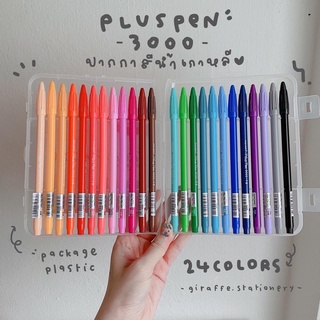 PLUSPEN
-3000-
ปากกาสีน้ำเกาหลี
package
plastic
24COLORS
-giraffe.stationery-